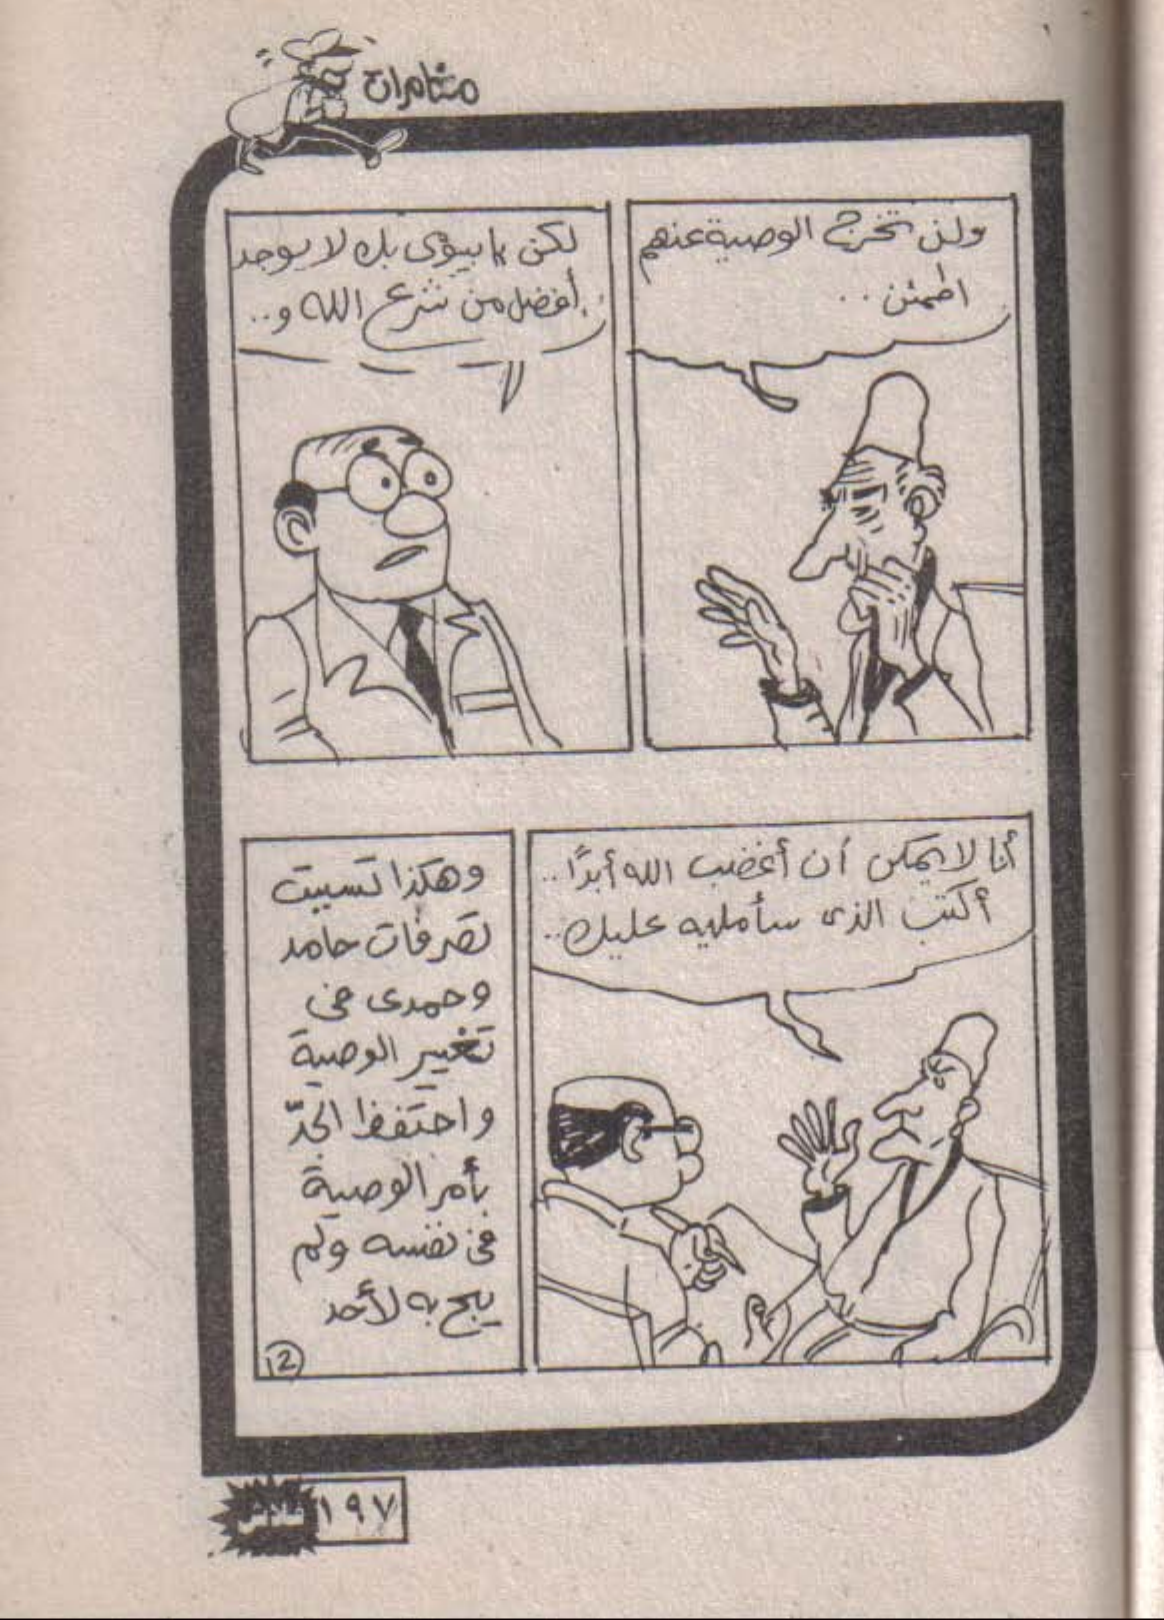 مغامرات
ولن تخرج الوصية عنهم
اطمئن ..
لكن يا بيومى بك لا يوجد
أفضل من شرع الله و..
أنا لا يمكن أن أغضب الله أبدًا..
أكتب الذى سأمليه عليك..
وهكذا تسببت
تصرفات حامد
وحمدى فى
تغيير الوصية
واحتفظ الجدّ
بأمر الوصية
فى نفسه ولم
يبح به لأحد
١٢
فلاش
١٩٧